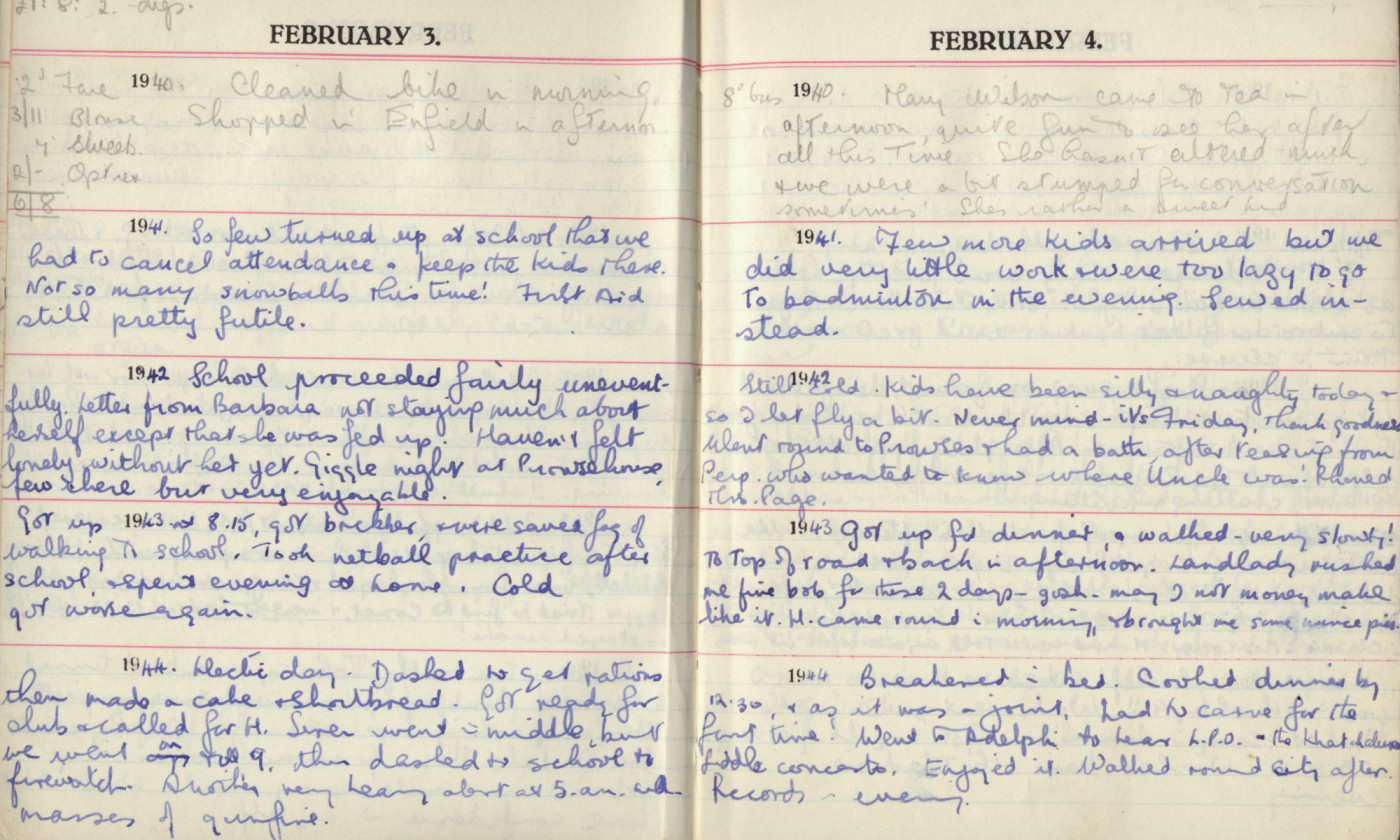 £1: 8: 2. -digs.
FEBRUARY 3.
2d Fare 1940. Cleaned bike in morning.
3/11 Blouse Shopped in Enfield in afternoon
4 Sweets.
2/-
6/8
1941. So few turned up at school that we
had to cancel attendance & keep the kids there.
Not so many snowballs this time! First Aid
still pretty futile.
1942 School proceeded fairly unevent-
fully. Letter from Barbara not staying much about
herself except that she was fed up. Haven't felt
lonely without her yet. Giggle night at Prowsehouse,
few there but very enjoyable.
Got up 1943 at 8.15, got brekker, & were saved fag of
walking to school. Took netball practice after
school, & spent evening at home. Cold
got worse again.
1944. Hectic day. Dashed to get rations
then made a cake & shortbread. Got ready for
club & called for H. Siren went in middle, but
we went on till 9, then dashed to school to
firewatch. Another very heavy alert at 5.a.m. and
masses of gunfire.
FEBRUARY 4.
8d bus 1940. Mary Wilson came to Tea in
afternoon quite fun to see her after
all this Time. She hasn't altered much,
& we were a bit stumped for conversation
sometimes! She's rather a sweet kid
1941. Few more kids arrived but we
did very little work & were too lazy to go
to badminton in the evening. Sewed in-
stead.
Still 1942 cold. Kids have been silly & naughty today &
so I let fly a bit. Never mind - it's Friday, thank goodness
Went round to Prowses & had a bath, after teasing from
Perp. who wanted to know where Uncle was! Phoned
This. Page.
1943 Got up for dinner, & walked - very slowly!
To top of road & back in afternoon. Landlady rushed
me five bob for these 2 days - gosh - may I not money make
like it. H. came round in morning, & brought me some mince pies.
1944 Breakered in bed. Cooked dinner by
12.30, & as it was a joint, had to carve for the
first time. Went to Adelphi to hear L.P.O. - the Khatchaturian
fiddle concerto. Enjoyed it. Walked round City after.
Records in evening.